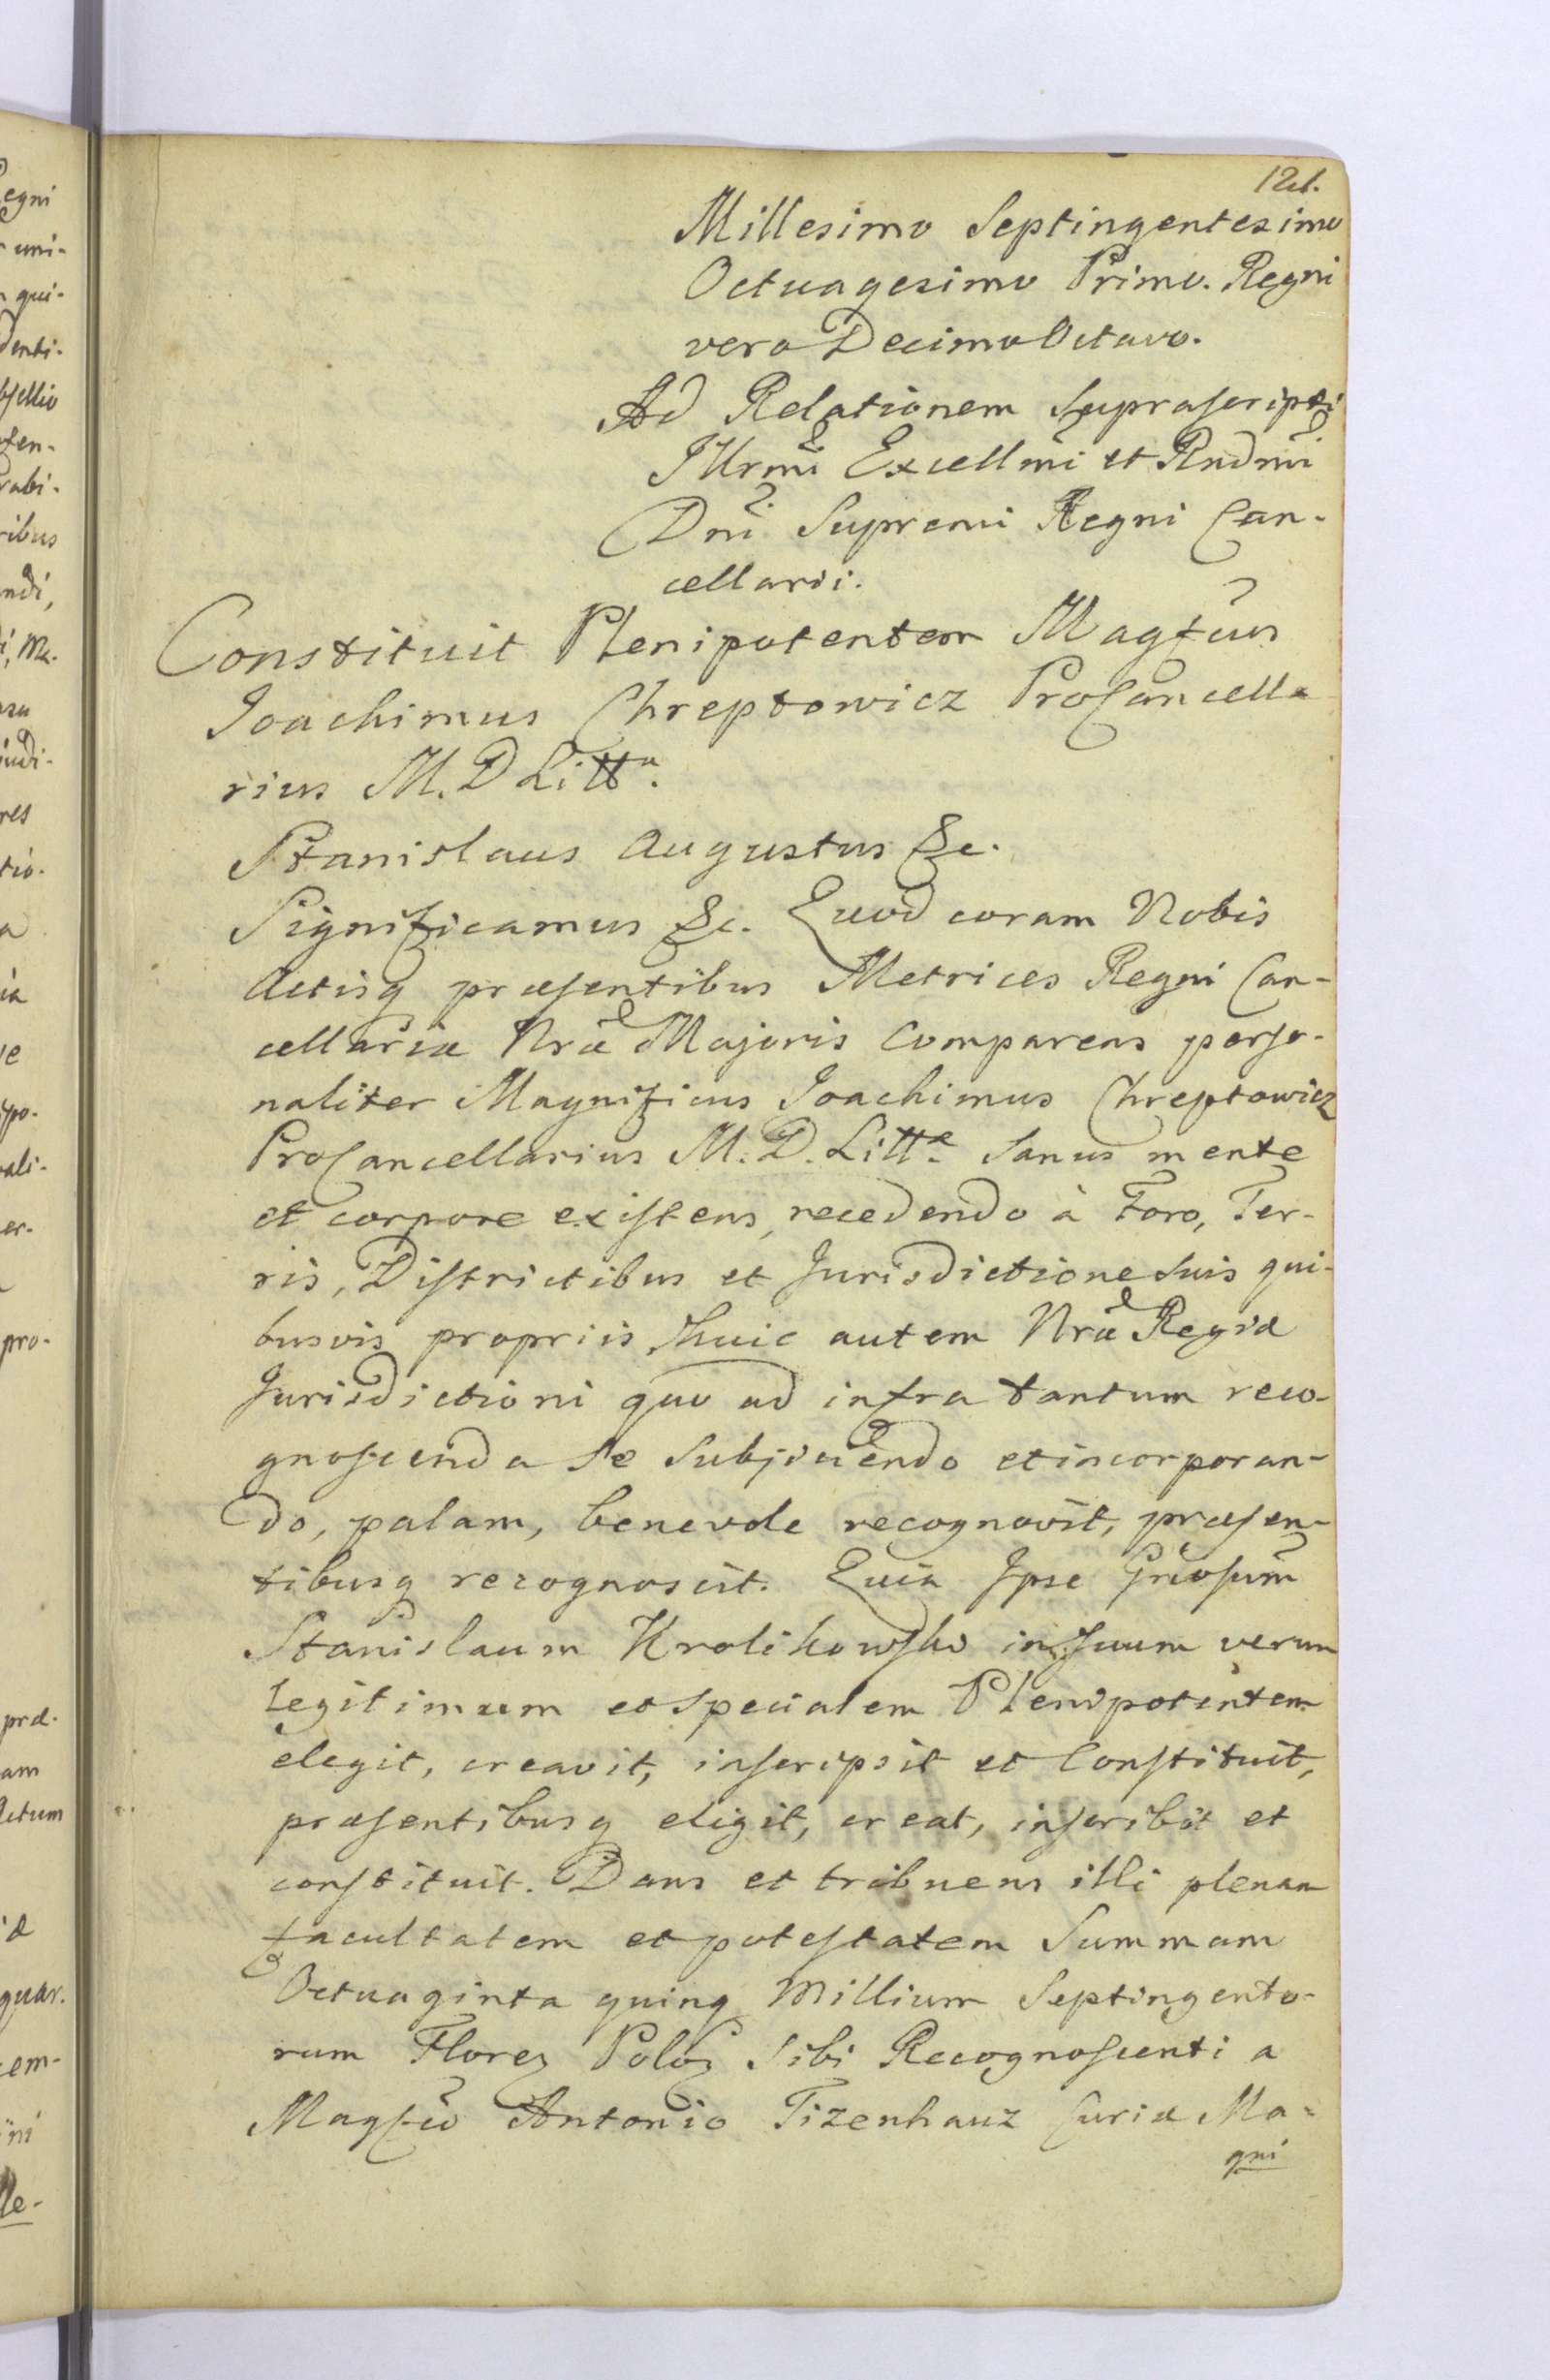 121.
Millesimo Septingentesimo
Octuagesimo Primo. Regni
vero Decimo Octavo.
Ad Relationem Suprascripti
Illrmi Excellmi et Rndmi
Dni Supremi Regni Can-
cellarii.
Constituit Plenipotentem Magfcus
Joachimus Chreptowicz ProCancella
rius M. D Littæ.
Stanislaus Augustus &c.
Significamus &c. Quod coram Nobis
Actisq præsentibus Metrices Regni Can-
cellariæ Nræ Majoris Comparens perso-
naliter Magnificus Joachimus Chreptowicz
ProCancellarius M. D. Littæ. Sanus mente
et corpore existens, recedendo à Foro, Ter-
ris, Districtibus et Jurisdictione suis qui-
busvis propriis, huic autem Nræ Regiæ
Jurisdictioni quo ad infra tantum reco-
gnoscenda se subjiciendo et incorporan-
do, palam, benevole recognovit, præsen-
tibusq recognoscit. Quia Ipse Gnrosum
Stanislaum Krolikowski in suum verum
legitimum et specialem Plenipotentem
elegit, creavit, inscripsit et Constituit,
præsentibusq eligit, creat, inscribit et
constituit. Dans et tribuens illi plenam
facultatem et potestatem Summam
Octuaginta quinq Millium Septingento-
rum Florez Poloz sibi Recognoscenti a
Magfco Antonio Tizenhauz Curiæ Ma-
gni
egni
uni-
qui-
denti-
bsellio
sen-
rabi-
ribus
ndi,
judi-
res
tio-
a
ia
ve
ypo-
vali-
er-
pro-
præ-
am
Actum
quar.
cem-
ini
lle-